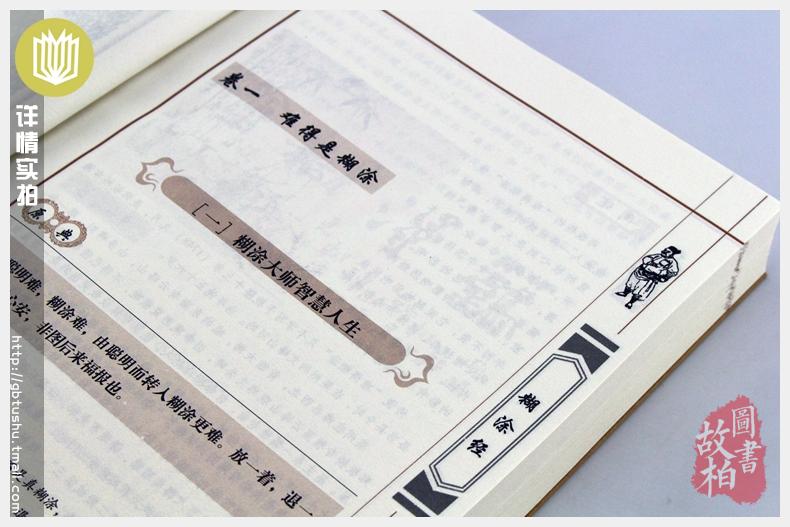 详情实拍
http://gbtushu.tmall.com
卷一 难得是糊涂
[一] 糊涂大师智慧人生
原典
聪明难，糊涂难，由聪明而转入糊涂更难。放一着，退一
心安，非图后来福报也。
真糊涂，
糊涂经
故柏
圖書